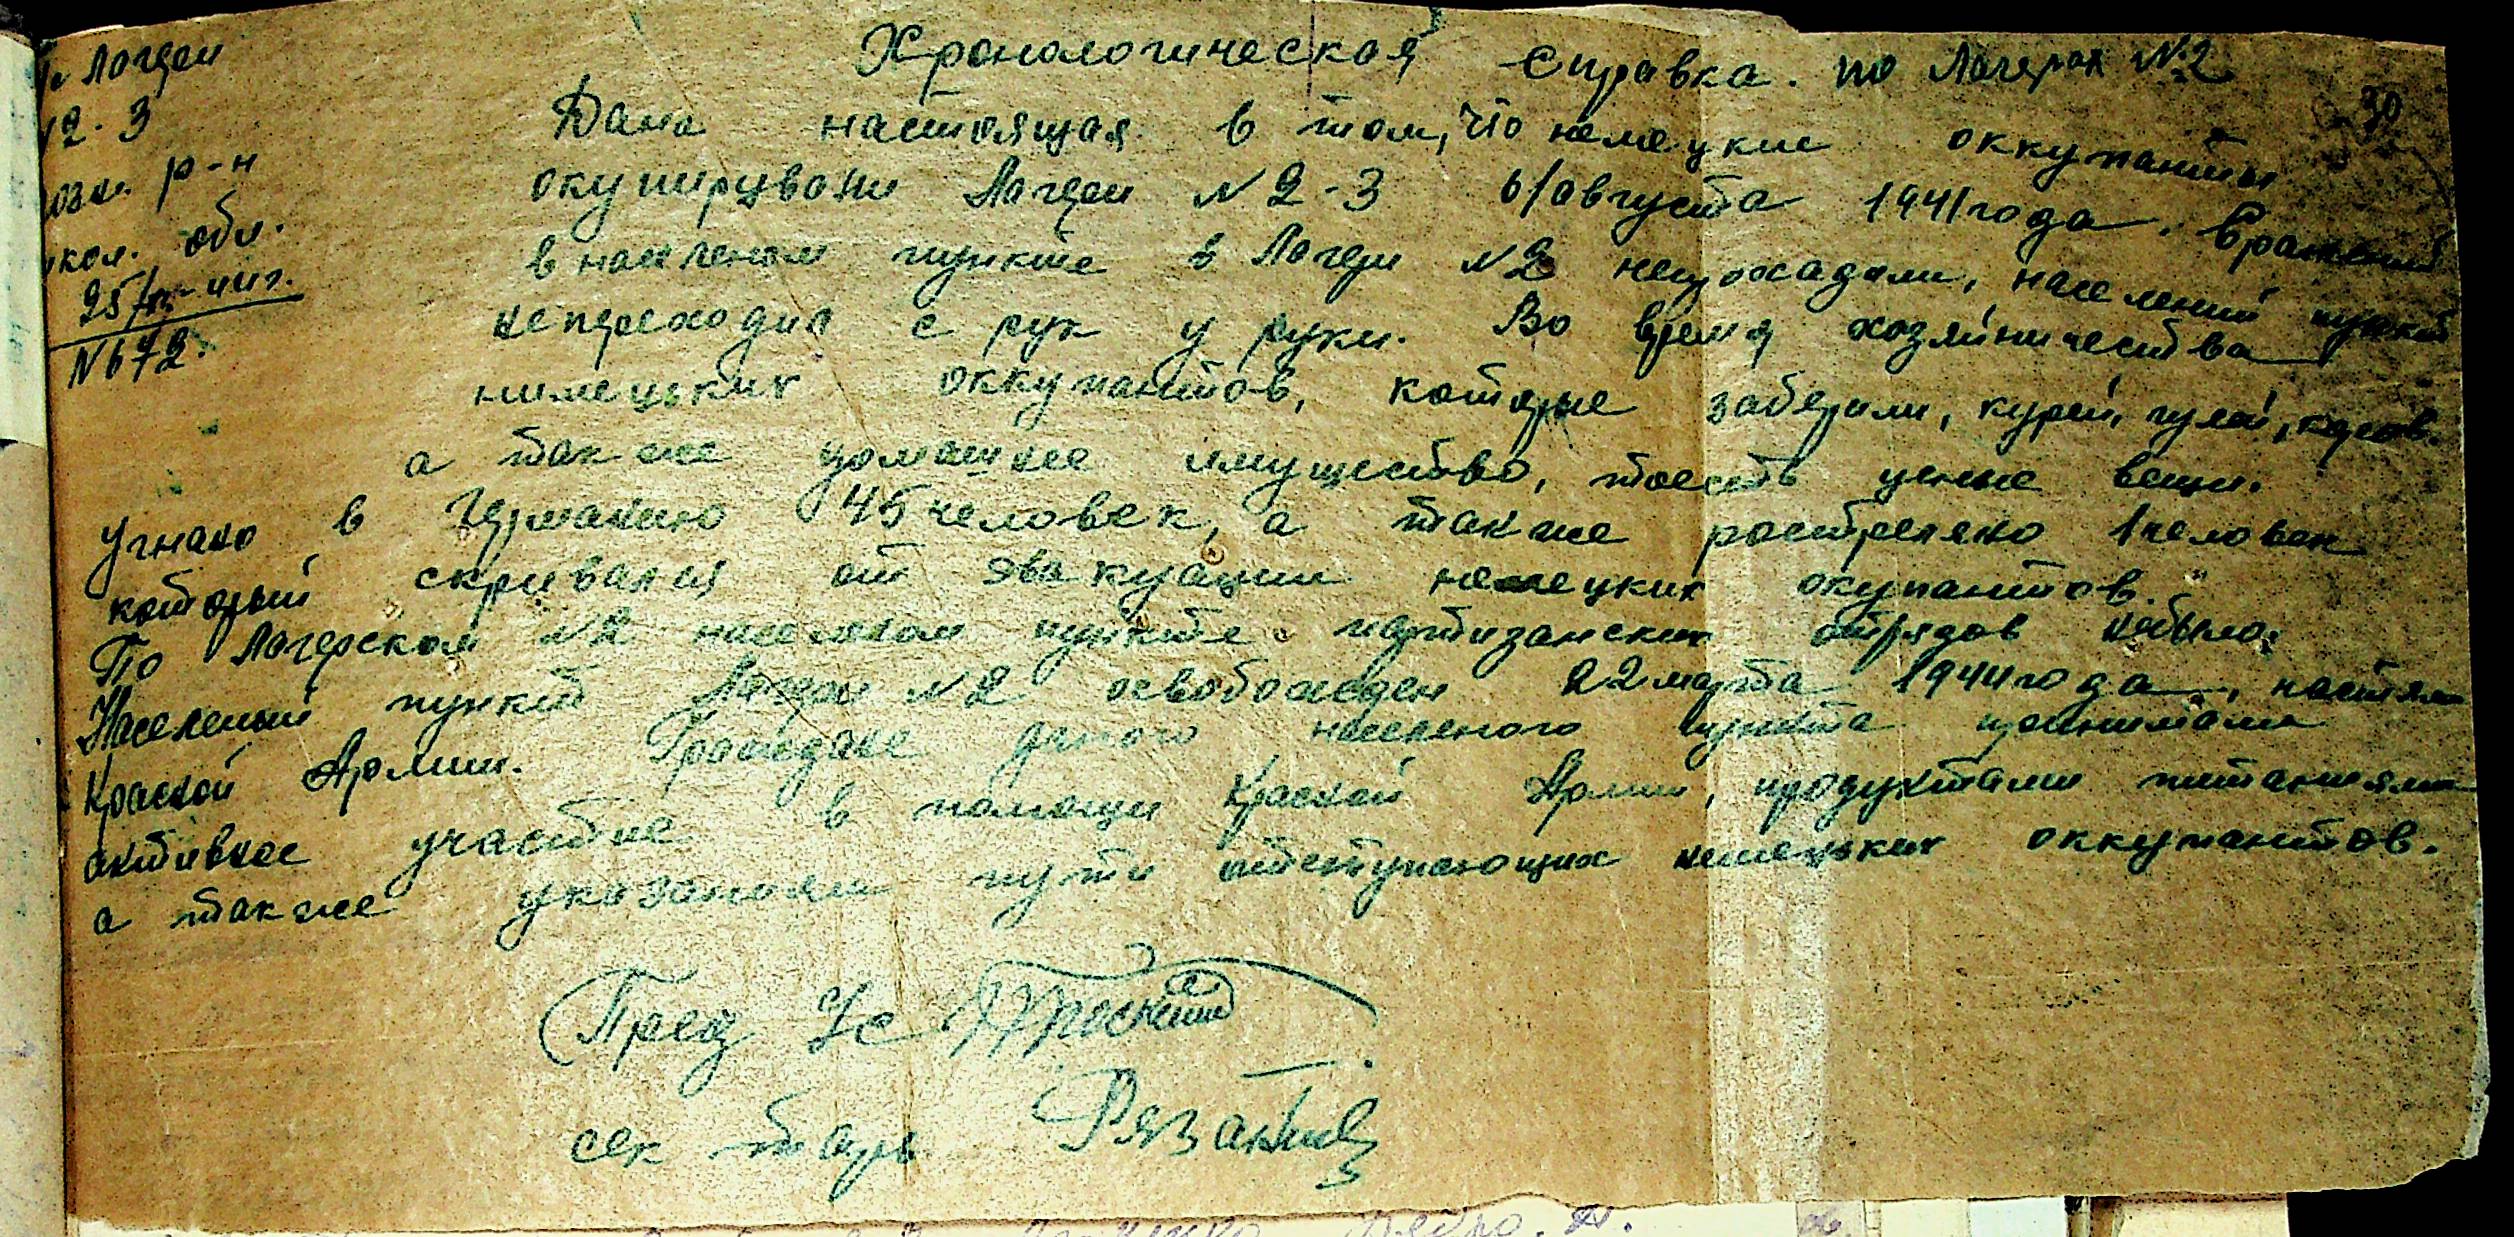 Лагери
№2-3
р-н
обл.
N672.
30
Хронологическая Справка. по Лагерях №2
Дана настоящая в том, что немецкие оккупанты
окупирували Лагери N 2-3 6/августа 1941 года. Сражений
в населеном пункте в Лагери N2 непроходили, населений пункт
непереходил с рук у руки. Во время хозяйничества
нимецьких оккупантов, которые заберили, курей, гусей, коров.
а так же домашнее имущество, тоесть ценые вещи.
Угнано в Германию 45 человек, а так же росстреляно 1 человек
который скривался от эвакуации немецких окупантов.
По Лагерском N2 населеном пункте партизанских отрядов небыло.
Населеный пункт Лагери N2 освобожеден 22 марта 1944 года,
Красной Армии. Граждане даного населеного пункта принимали
активное участие в помощи Красной Армии, продуктами питаниями
а так же указаниям пути отступающих немецьких оккупантов.
Пред С/с
сек тарь Рязанцев